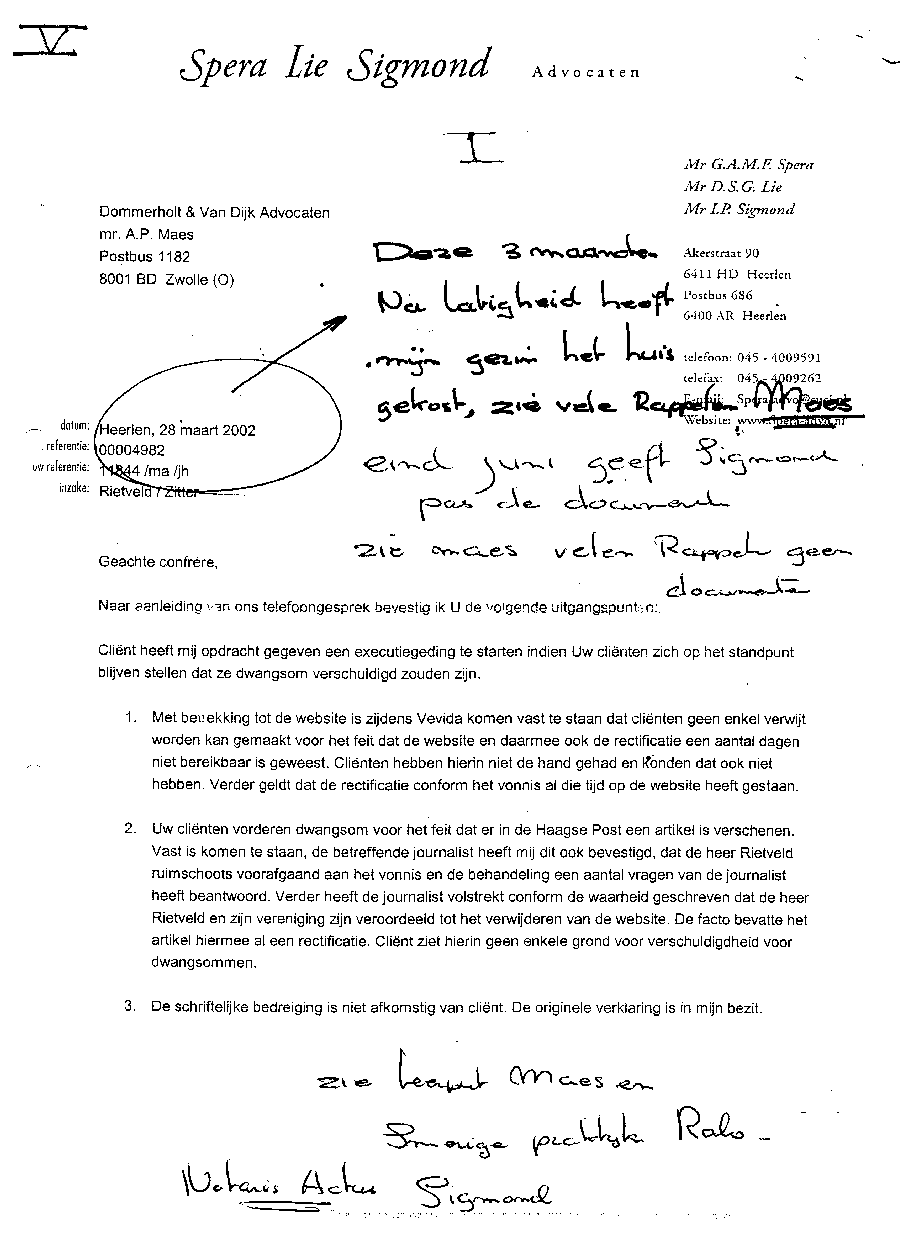 V
Spera Lie Sigmond Advocaten
I
Mr G.A.M.F. Spera
Mr D.S.G. Lie
Mr I.P. Sigmond
Dommerholt & Van Dijk Advocaten
mr. A.P. Maes
Postbus 1182
8001 BD Zwolle (O)
Akerstraat 90
6411 HD Heerlen
Postbus 686
6400 AR Heerlen
telefoon: 045 - 4009591
telefax: 045 - 4009262
E-mail:
Website: www.spera-advo.nl
Deze 3 maanden
Na latigheid heeft
mijn gezin het huis
gekost, zie vele Rappelen Maes
eind juni geeft Sigmond
pas de document
zie maes velen Rappel geen
documente
datum: Heerlen, 28 maart 2002
referentie: 00004982
uw referentie: 11844 /ma /jh
inzake: Rietveld / Zitter
Geachte confrère,
Naar aanleiding van ons telefoongesprek bevestig ik U de volgende uitgangspunten:
Cliënt heeft mij opdracht gegeven een executiegeding te starten indien Uw cliënten zich op het standpunt
blijven stellen dat ze dwangsom verschuldigd zouden zijn.
1. Met betrekking tot de website is zijdens Vevida komen vast te staan dat cliënten geen enkel verwijt
worden kan gemaakt voor het feit dat de website en daarmee ook de rectificatie een aantal dagen
niet bereikbaar is geweest. Cliënten hebben hierin niet de hand gehad en konden dat ook niet
hebben. Verder geldt dat de rectificatie conform het vonnis al die tijd op de website heeft gestaan.
2. Uw cliënten vorderen dwangsom voor het feit dat er in de Haagse Post een artikel is verschenen.
Vast is komen te staan, de betreffende journalist heeft mij dit ook bevestigd, dat de heer Rietveld
ruimschoots voorafgaand aan het vonnis en de behandeling een aantal vragen van de journalist
heeft beantwoord. Verder heeft de journalist volstrekt conform de waarheid geschreven dat de heer
Rietveld en zijn vereniging zijn veroordeeld tot het verwijderen van de website. De facto bevatte het
artikel hiermee al een rectificatie. Cliënt ziet hierin geen enkele grond voor verschuldigdheid voor
dwangsommen.
3. De schriftelijke bedreiging is niet afkomstig van cliënt. De originele verklaring is in mijn bezit.
zie Maes en
Smerige praktijk Rabo
Notaris Actus Sigmond